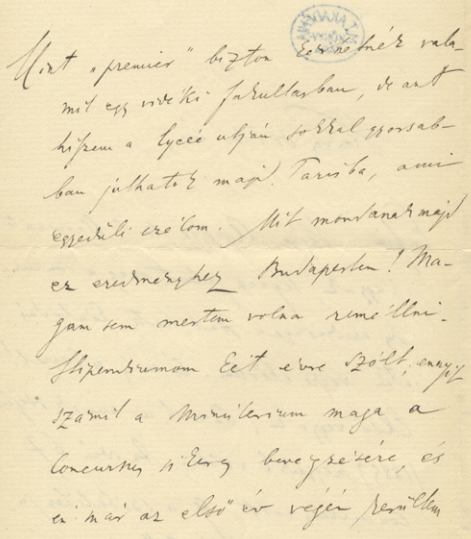 Mint „premier" bizton lehetnék vala-
mit egy vidéki fakultásban, de azt
hiszem a lycée útján sokkal gyorsab-
ban juthatok majd Párisba, ami
egyedüli czélom. Mit mondanak majd
ez eredményhez Budapesten! Ma-
gam sem mertem volna remélleni.
Stipendiumom két évre szólt, ennyit
számít a Ministerium maga a
concursus sikeres bevégzésére, és
én már az első év végén